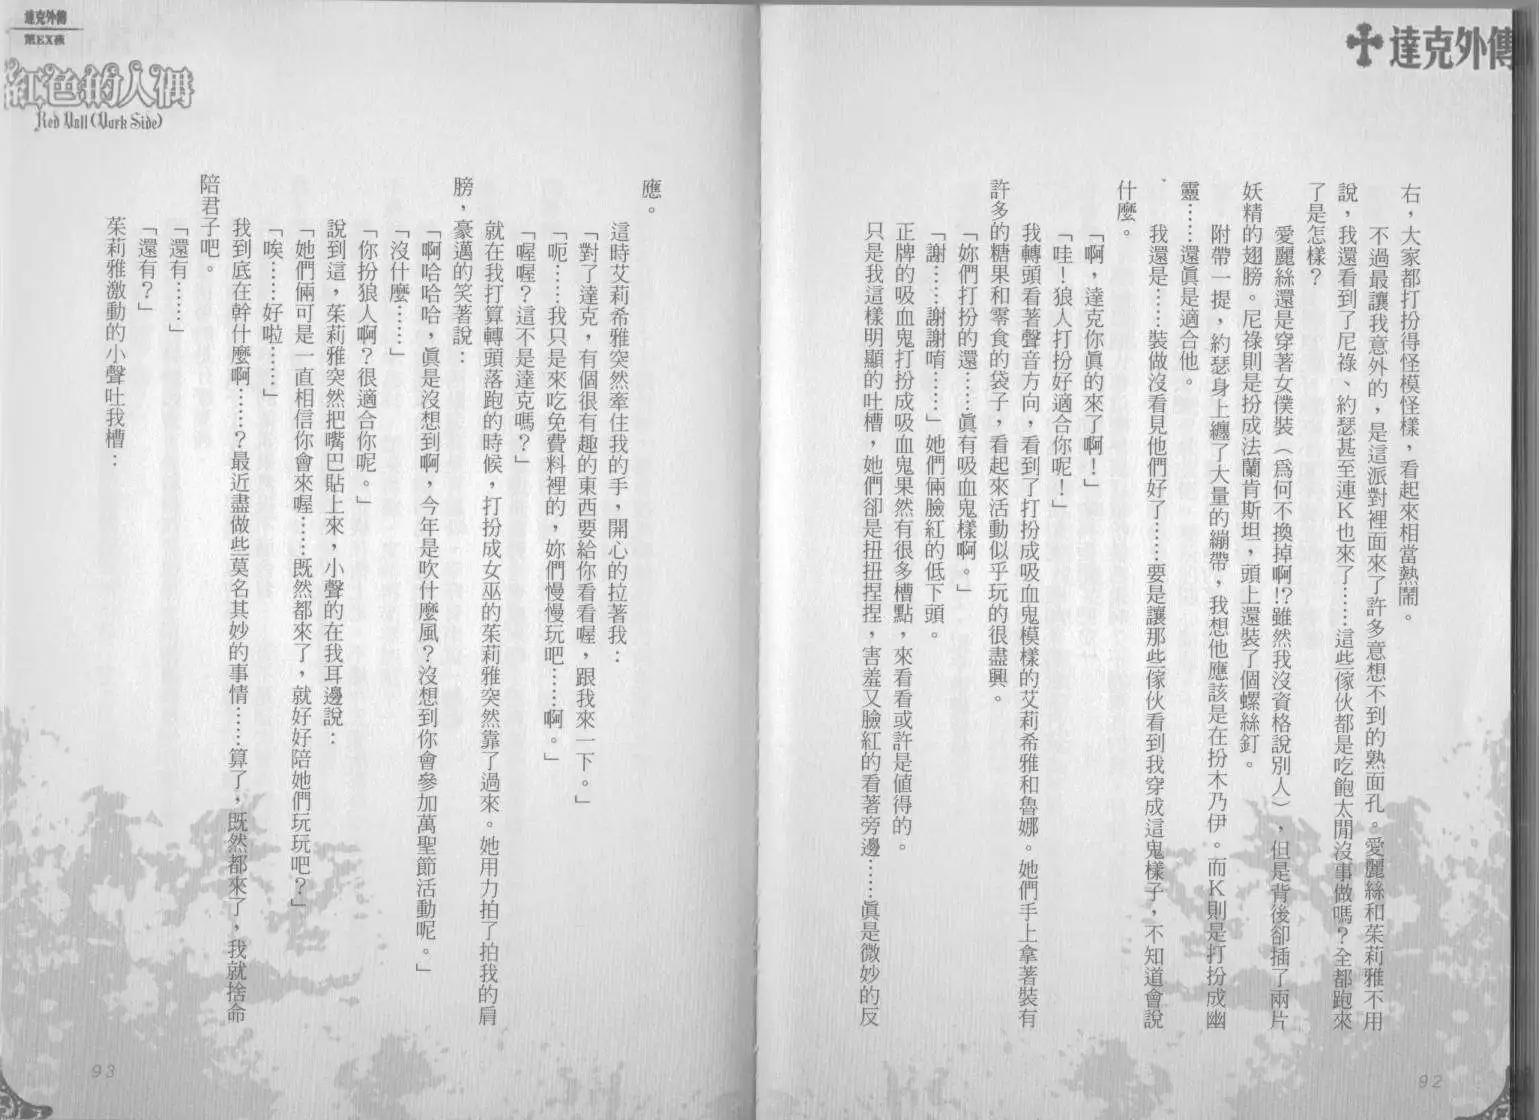 達克外傳
右，大家都打扮得怪模怪樣，看起來相當熱鬧。
不過最讓我意外的，是這派對裡面來了許多意想不到的熟面孔。愛麗絲和茱莉雅不用
說，我還看到了尼祿、約瑟甚至連K也來了……這些傢伙都是吃飽太閒沒事做嗎？全都跑來
了是怎樣？
愛麗絲還是穿著女僕裝（為何不換掉啊!?雖然我沒資格說別人），但是背後卻插了兩片
妖精的翅膀。尼祿則是扮成法蘭肯斯坦，頭上還裝了個螺絲釘。
附帶一提，約瑟身上纏了大量的繃帶，我想他應該是在扮木乃伊。而K則是打扮成幽
靈……還真是適合他。
我還是……裝做沒看見他們好了……要是讓那些傢伙看到我穿成這鬼樣子，不知道會說
什麼。
「啊，達克你真的來了啊！」
「哇！狼人打扮好適合你呢！」
我轉頭看著聲音方向，看到了打扮成吸血鬼模樣的艾莉希雅和魯娜。她們手上拿著裝有
許多的糖果和零食的袋子，看起來活動似乎玩的很盡興。
「妳們打扮的還……真有吸血鬼樣啊。」
「謝……謝謝唷……」她們倆臉紅的低下頭。
正牌的吸血鬼打扮成吸血鬼果然有很多槽點，來看看或許是值得的。
只是我這樣明顯的吐槽，她們卻是扭扭捏捏，害羞又臉紅的看著旁邊……真是微妙的反
92
達克外傳
第EX夜
紅色的人偶
Red Doll (Dark Side)
應。
這時艾莉希雅突然牽住我的手，開心的拉著我：
「對了達克，有個很有趣的東西要給你看看喔，跟我來一下。」
「呃……我只是來吃免費料裡的，妳們慢慢玩吧……啊。」
「喔喔？這不是達克嗎？」
就在我打算轉頭落跑的時候，打扮成女巫的茱莉雅突然靠了過來。她用力拍了拍我的肩
膀，豪邁的笑著說：
「啊哈哈哈，真是沒想到啊，今年是吹什麼風？沒想到你會參加萬聖節活動呢。」
「沒什麼……」
「你扮狼人啊？很適合你呢。」
說到這，茱莉雅突然把嘴巴貼上來，小聲的在我耳邊說：
「她們倆可是一直相信你會來喔……既然都來了，就好好陪她們玩玩吧？」
「唉……好啦……」
我到底在幹什麼啊……？最近盡做些莫名其妙的事情……算了，既然都來了，我就捨命
陪君子吧。
「還有……」
「還有？」
茱莉雅激動的小聲吐我槽：
93